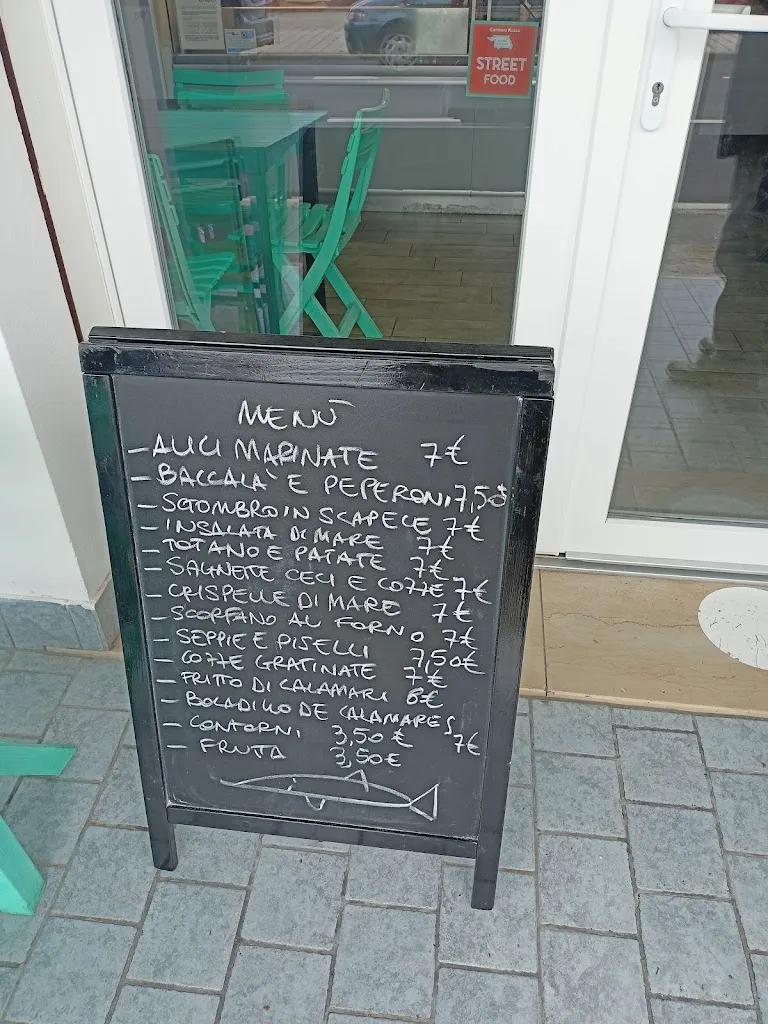 Gambero Rosso
STREET
FOOD
MENÙ
- ALICI MARINATE 7€
- BACCALA' E PEPERONI 7,50€
- SGOMBRO IN SCAPECE 7€
- INSALATA DI MARE 7€
- TOTANO E PATATE 7€
- SAGNETTE CECI E COZZE 7€
- CRISPELLE DI MARE 7€
- SCORFANO AL FORNO 7€
- SEPPIE E PISELLI 7,50€
- COZZE GRATINATE 7€
- FRITTO DI CALAMARI 8€
- BOCADILLO DE CALAMARES 7€
- CONTORNI 3,50€
- FRUTA 3,50€